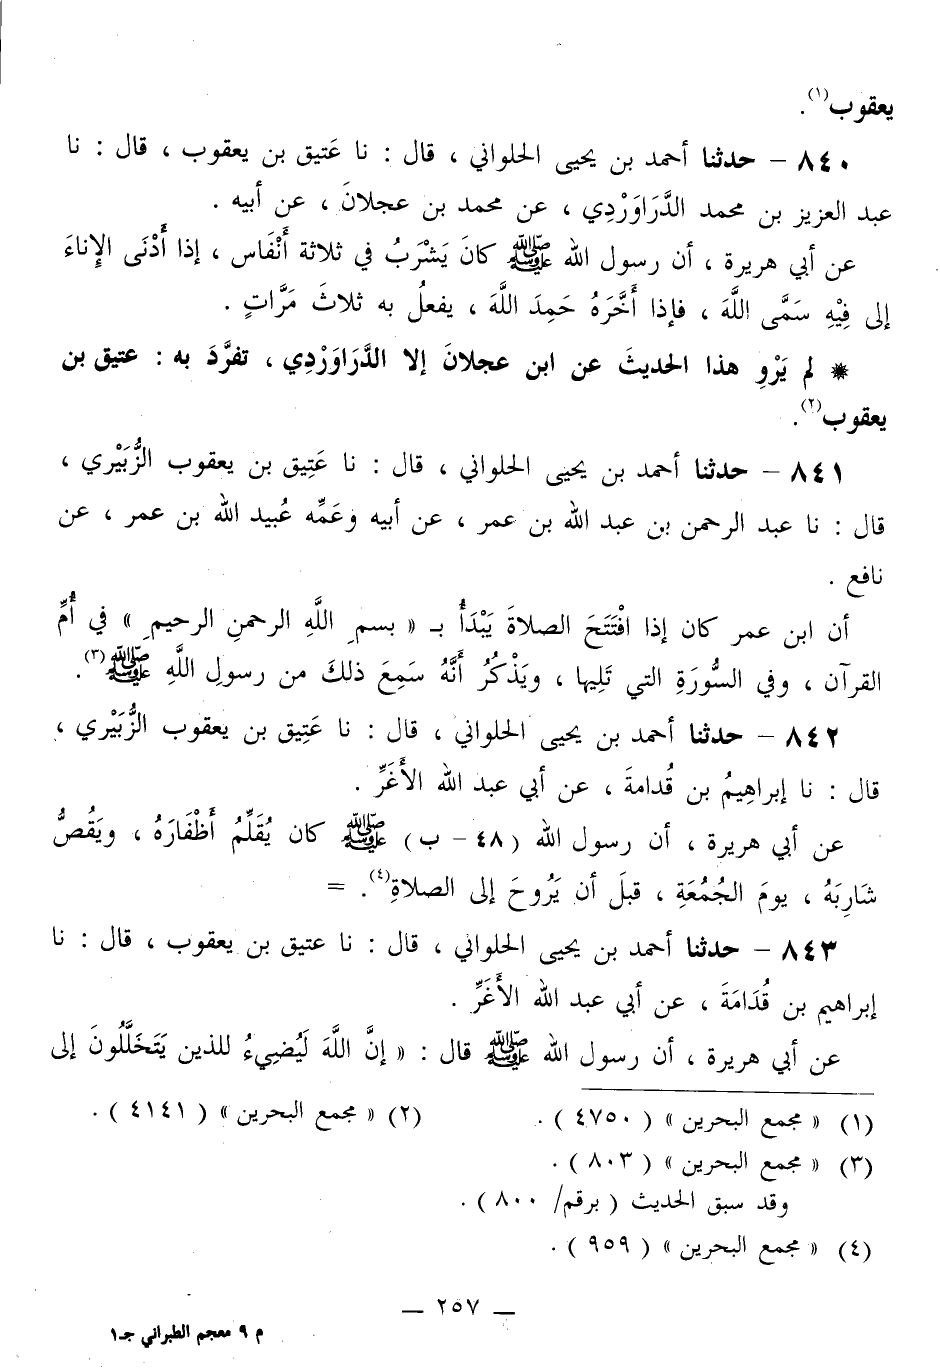 يعقوب(١).
٨٤٠ – حدثنا أحمد بن يحيى الحلواني ، قال : نا عَتيق بن يعقوب ، قال : نا
عبد العزيز بن محمد الدَّرَاوَرْدِي ، عن محمد بن عجلانَ ، عن أبيه .
عن أبي هريرة ، أن رسول الله ﷺ كانَ يَشْرَبُ في ثلاثة أَنْفَاس ، إذا أَدْنَى الإناءَ
إلى فِيْهِ سَمَّى اللَّهَ ، فإذا أَخَّرَهُ حَمِدَ اللَّهَ ، يفعلُ به ثلاثَ مَرَّاتٍ .
* لم يَرْوِ هذا الحديثَ عن ابن عجلانَ إلا الدَّرَاوَرْدِي ، تفرَّدَ به : عتيق بن
يعقوب(٢).
٨٤١ – حدثنا أحمد بن يحيى الحلواني ، قال : نا عَتِيق بن يعقوب الزُّبَيْري ،
قال : نا عبد الرحمن بن عبد الله بن عمر ، عن أبيه وعَمِّه عُبيد الله بن عمر ، عن
نافع .
أن ابن عمر كان إذا افْتَتَحَ الصلاةَ يَبْدَأُ بـ « بسمِ اللَّهِ الرحمنِ الرحيمِ » في أُمِّ
القرآن ، وفي السُّورَةِ التي تَلِيها ، ويَذْكُرُ أَنَّهُ سَمِعَ ذلكَ من رسولِ اللَّهِ ﷺ(٣).
٨٤٢ – حدثنا أحمد بن يحيى الحلواني ، قال : نا عَتِيق بن يعقوب الزُّبَيْري ،
قال : نا إبراهِيمُ بن قُدامةَ ، عن أبي عبد الله الأَغَرِّ .
عن أبي هريرة ، أن رسول الله (٤٨ – ب) ﷺ كان يُقَلِّمُ أَظْفَارَهُ ، ويَقُصُّ
شَارِبَهُ ، يومَ الجُمُعَةِ ، قبلَ أن يَرُوحَ إلى الصلاةِ(٤). =
٨٤٣ – حدثنا أحمد بن يحيى الحلواني ، قال : نا عتيق بن يعقوب ، قال : نا
إبراهيم بن قُدَامَةَ ، عن أبي عبد الله الأَغَرِّ .
عن أبي هريرة ، أن رسول الله ﷺ قال : « إنَّ اللَّهَ لَيُضِيءُ للذين يَتَخَلَّلُونَ إلى
(١) « مجمع البحرين » ( ٤٧٥٠ ) . (٢) « مجمع البحرين » ( ٤١٤١ ) .
(٣) « مجمع البحرين » ( ٨٠٣ ) .
وقد سبق الحديث ( برقم/ ٨٠٠ ) .
(٤) « مجمع البحرين » ( ٩٥٩ ) .
— ٢٥٧ —
م ٩ معجم الطبراني جـ١